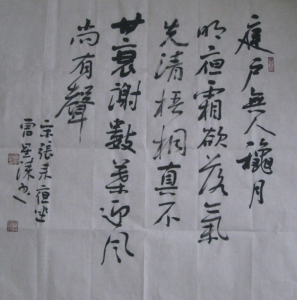 庭戶無人穐月
明夜霜欲落氣
先清梧桐真不
甘衰謝數葉迎风
尚有聲
宋張耒夜坐
雷